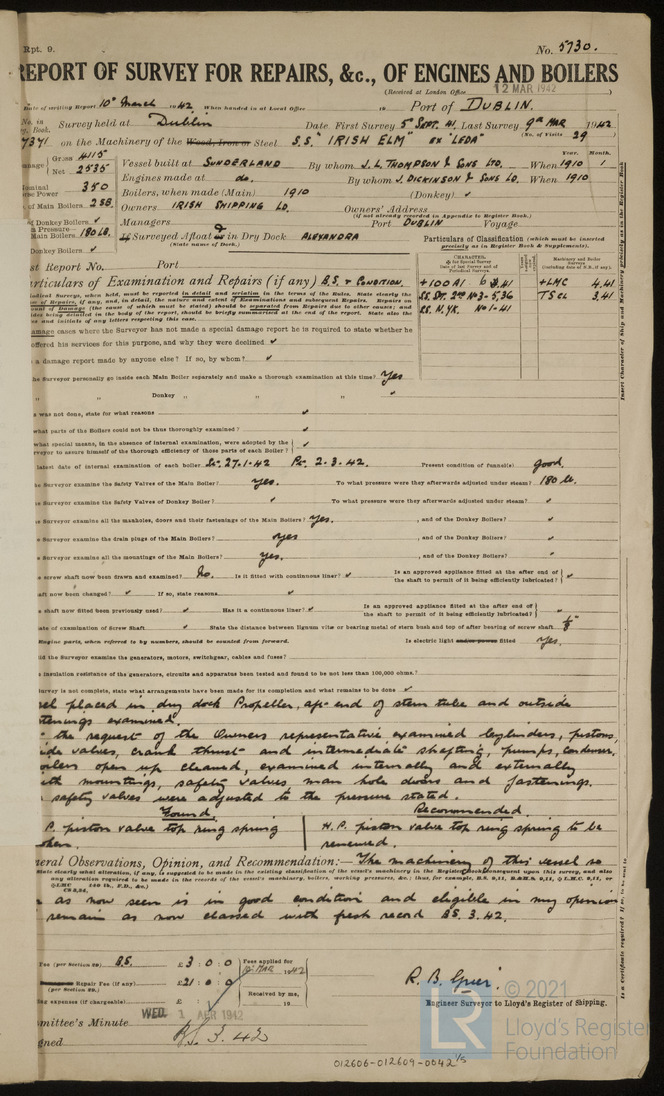 Rpt. 9.
No. 5730.
REPORT OF SURVEY FOR REPAIRS, &c., OF ENGINES AND BOILERS
(Received at London Office 12 MAR 1942 )
Date of writing Report 10th March 1942 When handed in at Local Office 19 Port of DUBLIN.
No. in Survey held at Dublin Date, First Survey 5th SEPT. 41. Last Survey 9th MAR 1942
Reg. Book. (No. of Visits 29
7371 on the Machinery of the Wood, Iron or Steel S.S. "IRISH ELM" EX "LEDA"
Tonnage Gross 4115 Net 2535
Vessel built at SUNDERLAND By whom J.L. THOMPSON & SONS LTD. When 1910 Year. Month. 1
Engines made at do. By whom J. DICKINSON & SONS LD. When 1910
Nominal Horse Power 350 Boilers, when made (Main) 1910 (Donkey) ✓
No. of Main Boilers 2SB. Owners IRISH SHIPPING LD. Owners' Address
(if not already recorded in Appendix to Register Book.)
of Donkey Boilers ✓ Managers Port DUBLIN Voyage
Pressure Main Boilers 180 LB. If Surveyed Afloat or in Dry Dock ALEXANDRA
(State name of Dock.)
Donkey Boilers ✓
Particulars of Classification (which must be inserted precisely as in Register Book & Supplements).
st Report No. Port
Particulars of Examination and Repairs (if any) B.S. & CONDITION.
+100A1 6.3.41 +LMC 4.41
SS. DT. 2ND NO3-5.36 TS CL 3.41
SS. N.YK. NO1-41
damage cases where the Surveyor has not made a special damage report he is required to state whether he
offered his services for this purpose, and why they were declined ✓
a damage report made by anyone else? If so, by whom? ✓
he Surveyor personally go inside each Main Boiler separately and make a thorough examination at this time? Yes
" " Donkey " " " ✓
was not done, state for what reasons ✓
what parts of the Boilers could not be thus thoroughly examined? ✓
what special means, in the absence of internal examination, were adopted by the
rveyor to assure himself of the thorough efficiency of those parts of each Boiler? ✓
latest date of internal examination of each boiler St. 27.1.42 Pt. 2.3.42. Present condition of funnel(s) good.
he Surveyor examine the Safety Valves of the Main Boiler? yes. To what pressure were they afterwards adjusted under steam? 180 lb.
he Surveyor examine the Safety Valves of Donkey Boiler? ✓ To what pressure were they afterwards adjusted under steam? ✓
he Surveyor examine all the manholes, doors and their fastenings of the Main Boilers? yes. , and of the Donkey Boilers? ✓
he Surveyor examine the drain plugs of the Main Boilers? yes , and of the Donkey Boilers? ✓
he Surveyor examine all the mountings of the Main Boilers? yes. , and of the Donkey Boilers? ✓
screw shaft now been drawn and examined? No. Is it fitted with continuous liner? ✓ Is an approved appliance fitted at the after end of the shaft to permit of it being efficiently lubricated? ✓
aft now been changed? ✓ If so, state reasons ✓
shaft now fitted been previously used? ✓ Has it a continuous liner? ✓ Is an approved appliance fitted at the after end of the shaft to permit of it being efficiently lubricated? ✓
ate of examination of Screw Shaft ✓ State the distance between lignum vitæ or bearing metal of stern bush and top of after bearing of screw shaft 1/8"
Engine parts, when referred to by numbers, should be counted from forward. Is electric light and/or power fitted Yes.
id the Surveyor examine the generators, motors, switchgear, cables and fuses?
insulation resistance of the generators, circuits and apparatus been tested and found to be not less than 100,000 ohms?
survey is not complete, state what arrangements have been made for its completion and what remains to be done ✓
sel placed in dry dock Propeller, aft end of stern tube and outside
tenings examined.
the request of the Owners representative examined cylinders, pistons,
ide valves, crank thrust and intermediate shafting, pumps, condenser.
oilers open up cleaned, examined internally and externally
ith mountings, safety valves man hole doors and fastenings.
safety valves were adjusted to the pressure stated.
Found Recommended.
P. piston valve top ring spring | H.P. piston valve top ring spring to be
oken. | renewed.
General Observations, Opinion, and Recommendation:— The machinery of this vessel so
(State clearly what alteration, if any, is suggested to be made in the existing classification of the vessel's machinery in the Register Book consequent upon this survey, and also
any alteration required to be made in the records of the vessel's machinery, boilers, working pressures, &c.; thus, for example, B.S. 9,11, B.&M.S. 9,11, or L.M.C. 9,11, or
as now seen is in good condition and eligible in my opinion
remain as now classed with fresh record BS. 3.42.
Fee (per Section 29) B.S. £ 3 : 0 : 0 Fees applied for
Repair Fee (if any) £21 : 0 : 0 10 MAR 1942
(per Section 29).
ng expenses (if chargeable) £ : : Received by me, 19
R. B. Grier.
Engineer Surveyor to Lloyd's Register of Shipping.
mmittee's Minute WED. 1 APR 1942
gned BS. 3.42
© 2021
Lloyd's Register
Foundation
012606-012609-0042 1/2